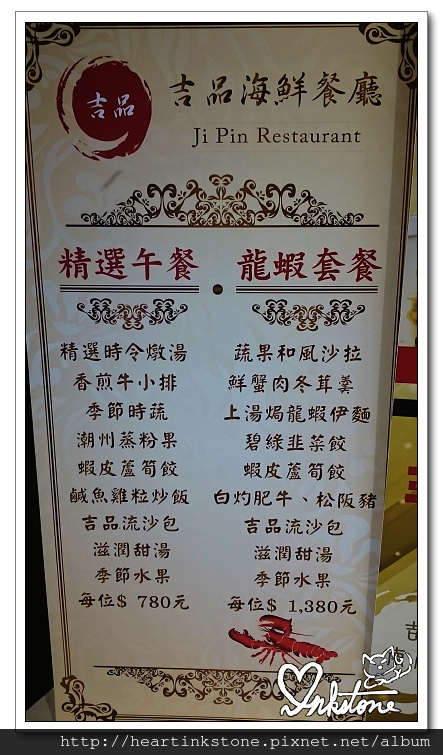 吉品
吉品海鮮餐廳
Ji Pin Restaurant
精選午餐
精選時令燉湯
香煎牛小排
季節時蔬
潮州蒸粉果
蝦皮蘆筍餃
鹹魚雞粒炒飯
吉品流沙包
滋潤甜湯
季節水果
每位$ 780元
龍蝦套餐
蔬果和風沙拉
鮮蟹肉冬茸羹
上湯焗龍蝦伊麵
碧綠韭菜餃
蝦皮蘆筍餃
白灼肥牛、松阪豬
吉品流沙包
滋潤甜湯
季節水果
每位$ 1,380元
吉
Inkstone
http://heartinkstone.pixnet.net/album